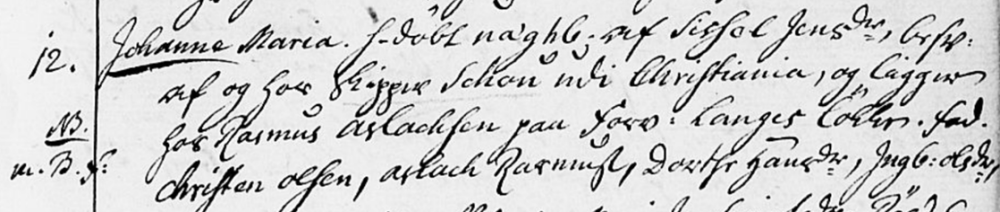 12. Johanne Maria. h-döbt. af Sissel Jensdr, besv:
af og hos Skipper Schou udi Christiania, og ligger
NB. hos Rasmus Aslachsen paa Forv: Langes Löcke. Fad.
m. B. f: Christen Olsen, Aslach Rasmuss, Dorthe Hansdr, Ingb: Olsdr,